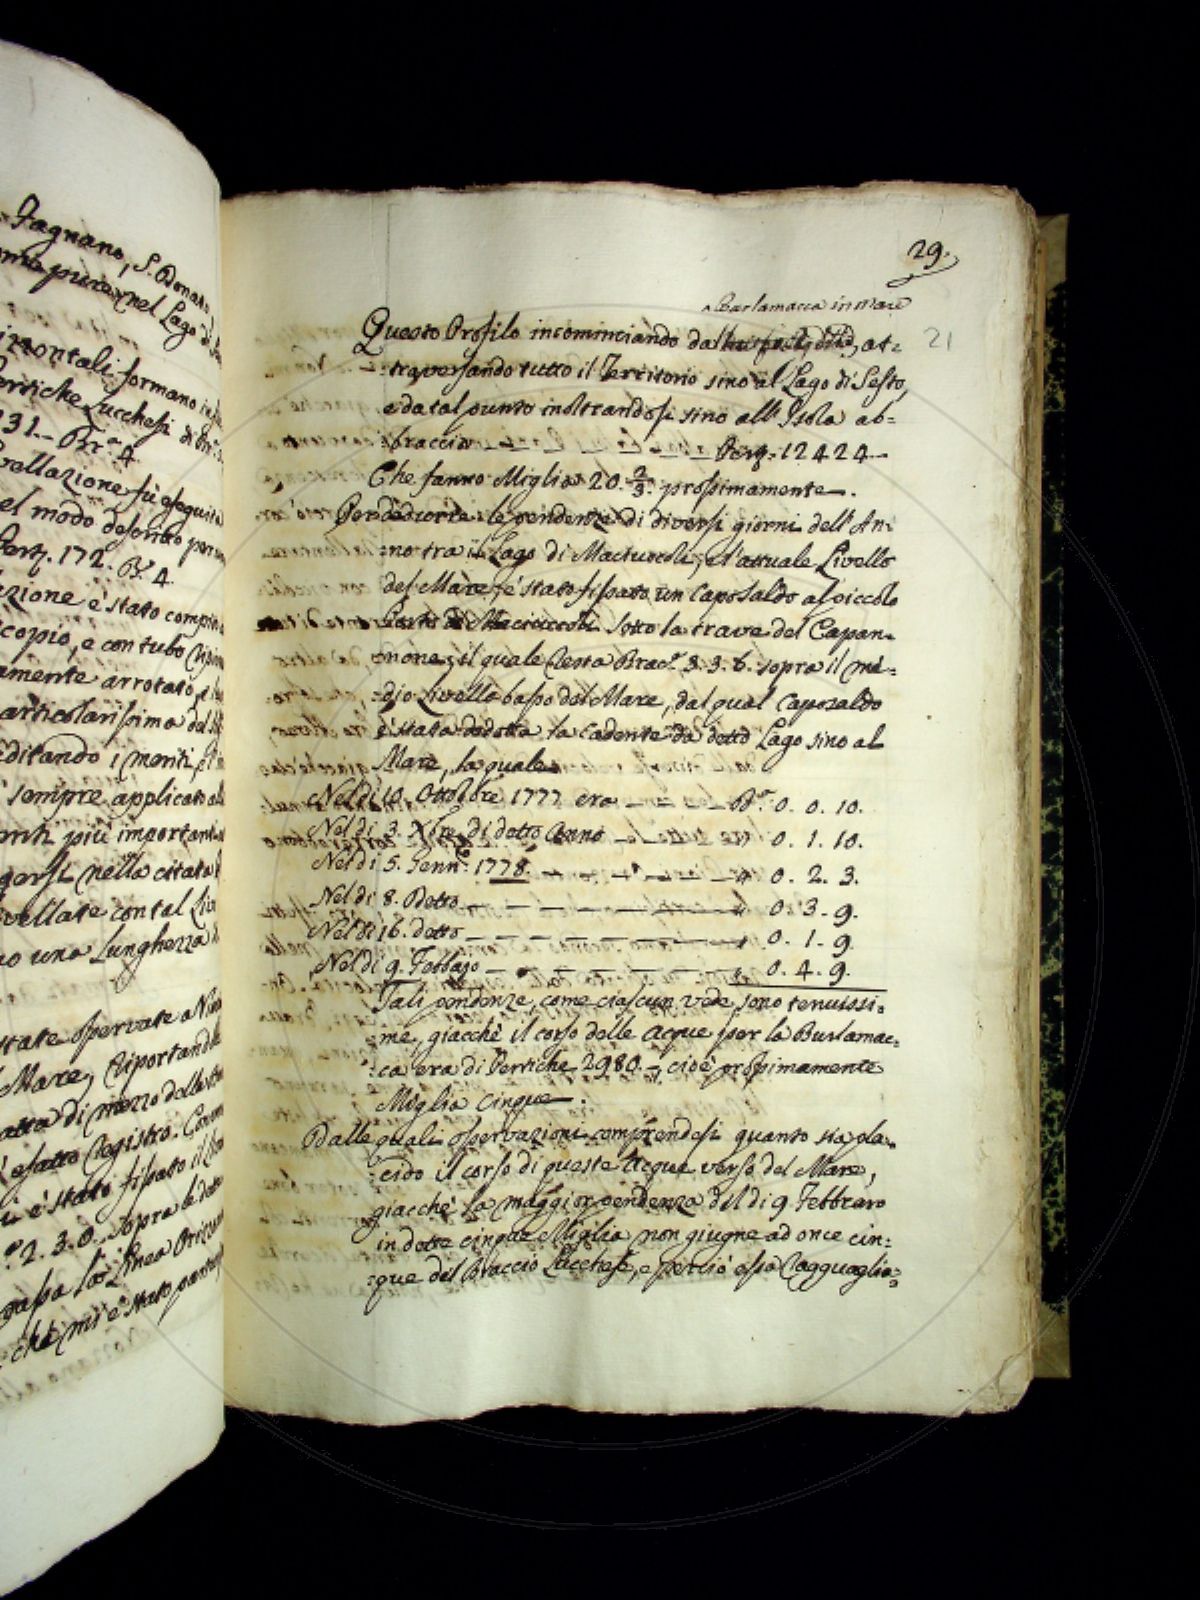 Fagnano, S. Donato
pure nel Lago di
izontali formano
Pertiche Lucchesi di
31.- Br.ª 4.
vellazione fù eseguita
el modo descritto per
Pert. 172. Br. 4.
zione è stato compito
copio, e con tubo
amente arrotato,
articolarissima del
editando i monti,
sempre applicato al
più importanti
gersi nella citata
vellate con tal Liv
una Lunghezza
state osservate a
Mare, riportando
di mezzo della
esatto Registro.
è stato fissato il
2. 3. 0. sopra
passa la Linea Orizon
che mi è stato
29.
21
Burlamacca in Mare
Questo Profilo incominciando dal at=
=traversando tutto il Territorio sino al Lago di Sesto,
e da tal punto inoltrandosi sino all' Isola ab=
=braccia Pert. 12424.-
Che fanno Miglia 20. 2/3. prossimamente.
Per dedurre le pendenze di diversi giorni dell' An=
=no tra il Lago di Maciuccoli, e l'attuale Livello
del Mare, è stato fissato un Caposaldo al piccolo
Porto di Maciuccoli sotto la trave del Capan=
=none, il quale resta Brac.ª 3. 3. 6. sopra il me=
=dio Livello basso del Mare, dal qual Caposaldo
è stata dedotta la Cadente da detto Lago sino al
Mare, la quale
Nel dì 10. Ottobre 1777 era - - - Br.ª 0. 0. 10.
Nel dì 3. Xbre di detto Anno - - - 0. 1. 10.
Nel dì 5. Genn.º 1778. - - - 0. 2. 3.
Nel dì 8. Detto - - - 0. 3. 9.
Nel dì 16. detto - - - 0. 1. 9.
Nel dì 9. Febbajo - - - 0. 4. 9.
Tali pendenze, come ciascun vede, sono tenuissi=
=me, giacchè il corso delle Acque per la Burlamac=
=ca era di Pertiche 2980.-, cioè prossimamente
Miglia Cinque.
Dalle quali osservazioni comprendesi quanto sia pla=
=cido il corso di queste Acque verso del Mare,
giacchè la maggior pendenza del dì 9 Febbraro
in dette cinque Miglia non giugne ad once cin=
=que del Braccio Lucchese, e perciò essa ragguaglia=